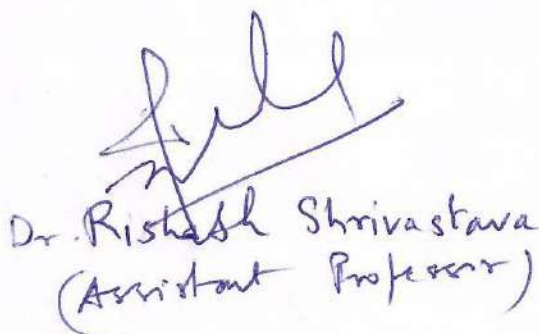 Dr. Rishabh Shrivastava
(Assistant Professor)